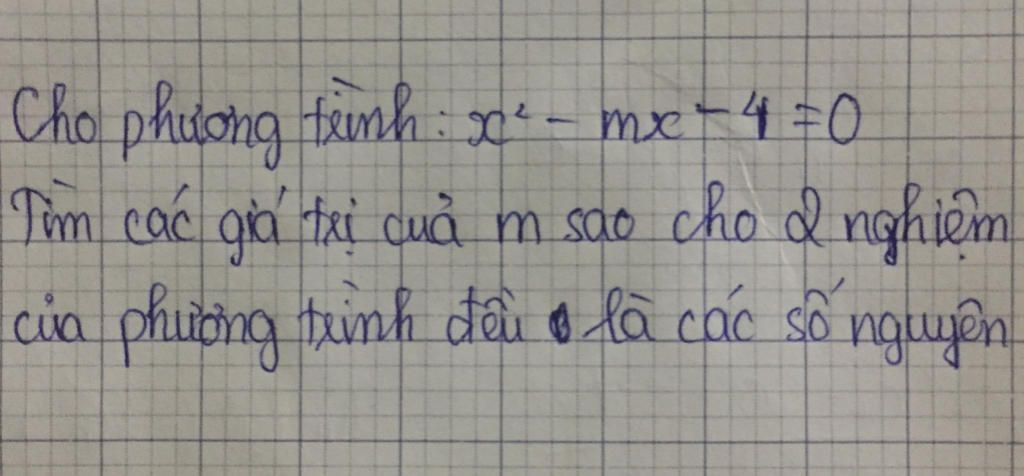 Cho phương trình: x² - mx - 4 = 0
Tìm các giá trị cuả m sao cho 2 nghiệm
của phương trình đều là các số nguyên